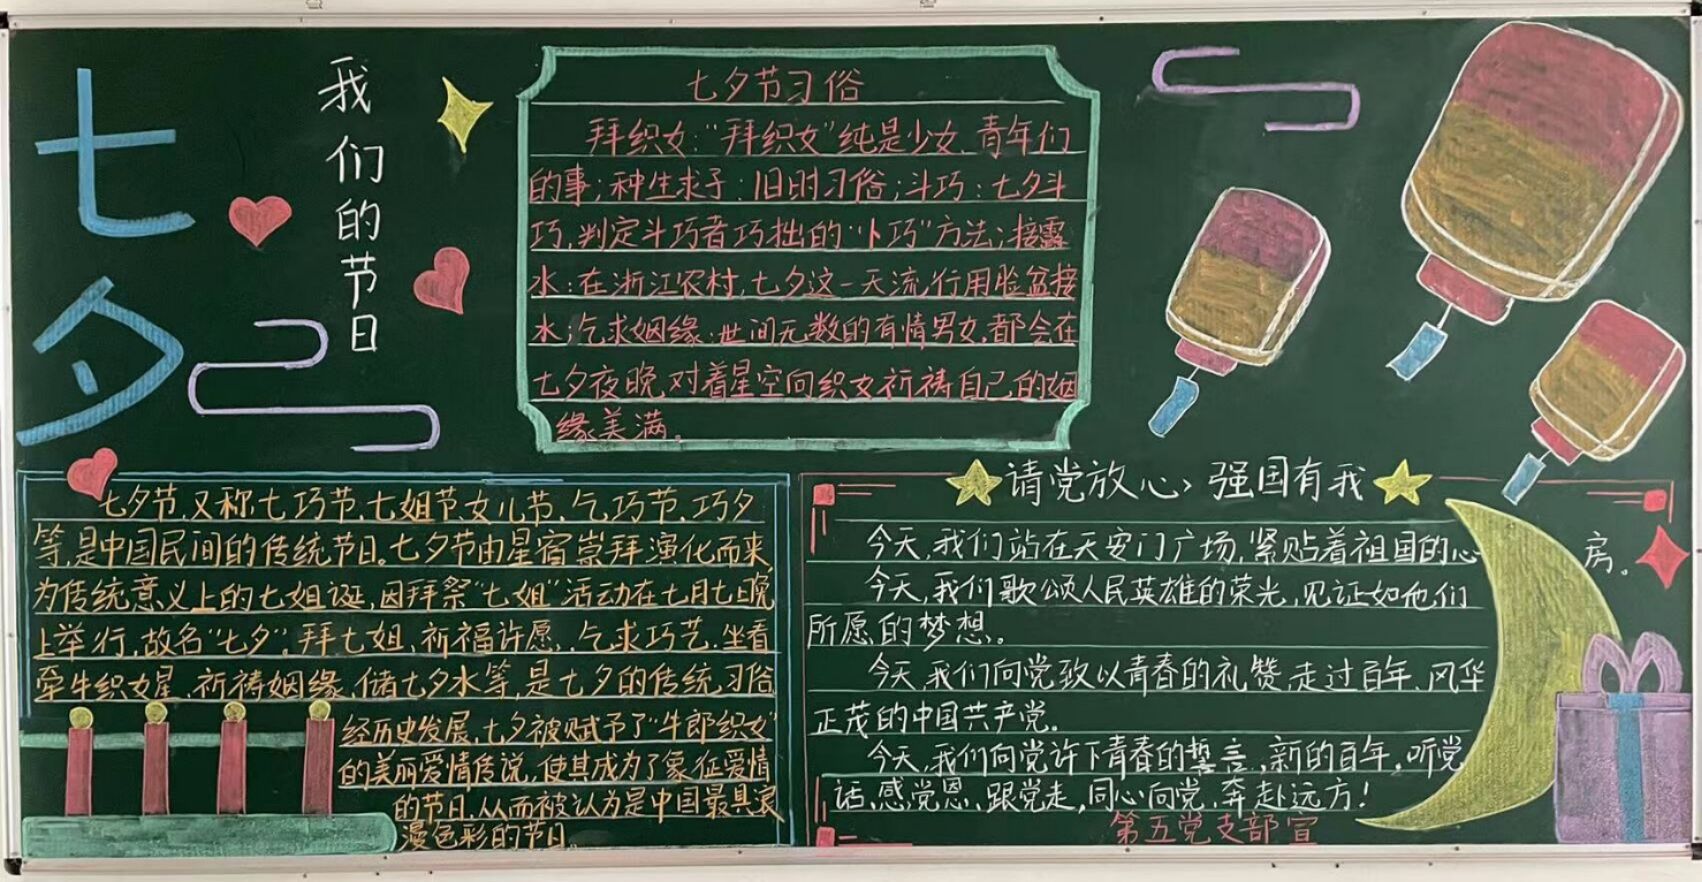 七夕
我们的节日
七夕节习俗
拜织女:“拜织女”纯是少女、青年们
的事;种生求子:旧时习俗;斗巧:七夕斗
巧,判定斗巧者巧拙的“卜巧”方法;接露
水:在浙江农村,七夕这一天流行用脸盆接
水;乞求姻缘:世间无数的有情男女,都会在
七夕夜晚,对着星空向织女祈祷自己的姻
缘美满。
七夕节,又称七巧节、七姐节、女儿节、乞巧节、巧夕
等,是中国民间的传统节日。七夕节由星宿崇拜演化而来
为传统意义上的七姐诞,因拜祭“七姐”活动在七月七晚
上举行,故名“七夕”。拜七姐、祈福许愿、乞求巧艺、坐看
牵牛织女星、祈祷姻缘、储七夕水等,是七夕的传统习俗
经历史发展,七夕被赋予了“牛郎织女”
的美丽爱情传说,使其成为了象征爱情
的节日,从而被认为是中国最具浪
漫色彩的节日。
请党放心、强国有我
今天,我们站在天安门广场,紧贴着祖国的心房。
今天,我们歌颂人民英雄的荣光,见证如他们
所愿的梦想。
今天,我们向党致以青春的礼赞,走过百年、风华
正茂的中国共产党。
今天,我们向党许下青春的誓言,新的百年,听党
话、感党恩、跟党走,同心向党,奔赴远方!
第五党支部宣